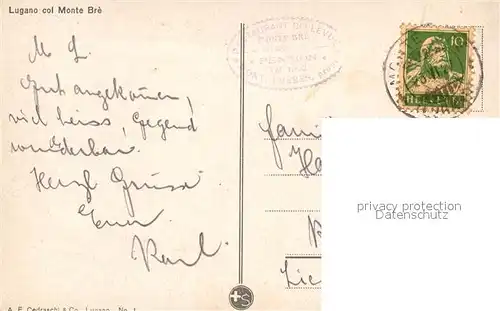 Lugano col Monte Brè
M. L.
Gut angekommen,
viel heiss, Gegend
wunderbar.
Herzl Grüsse
Euer
Karl.
10
HELVETIA
privacy protection
Datenschutz
+S
A. F. Cedraschi & Co., Lugano, No. 1